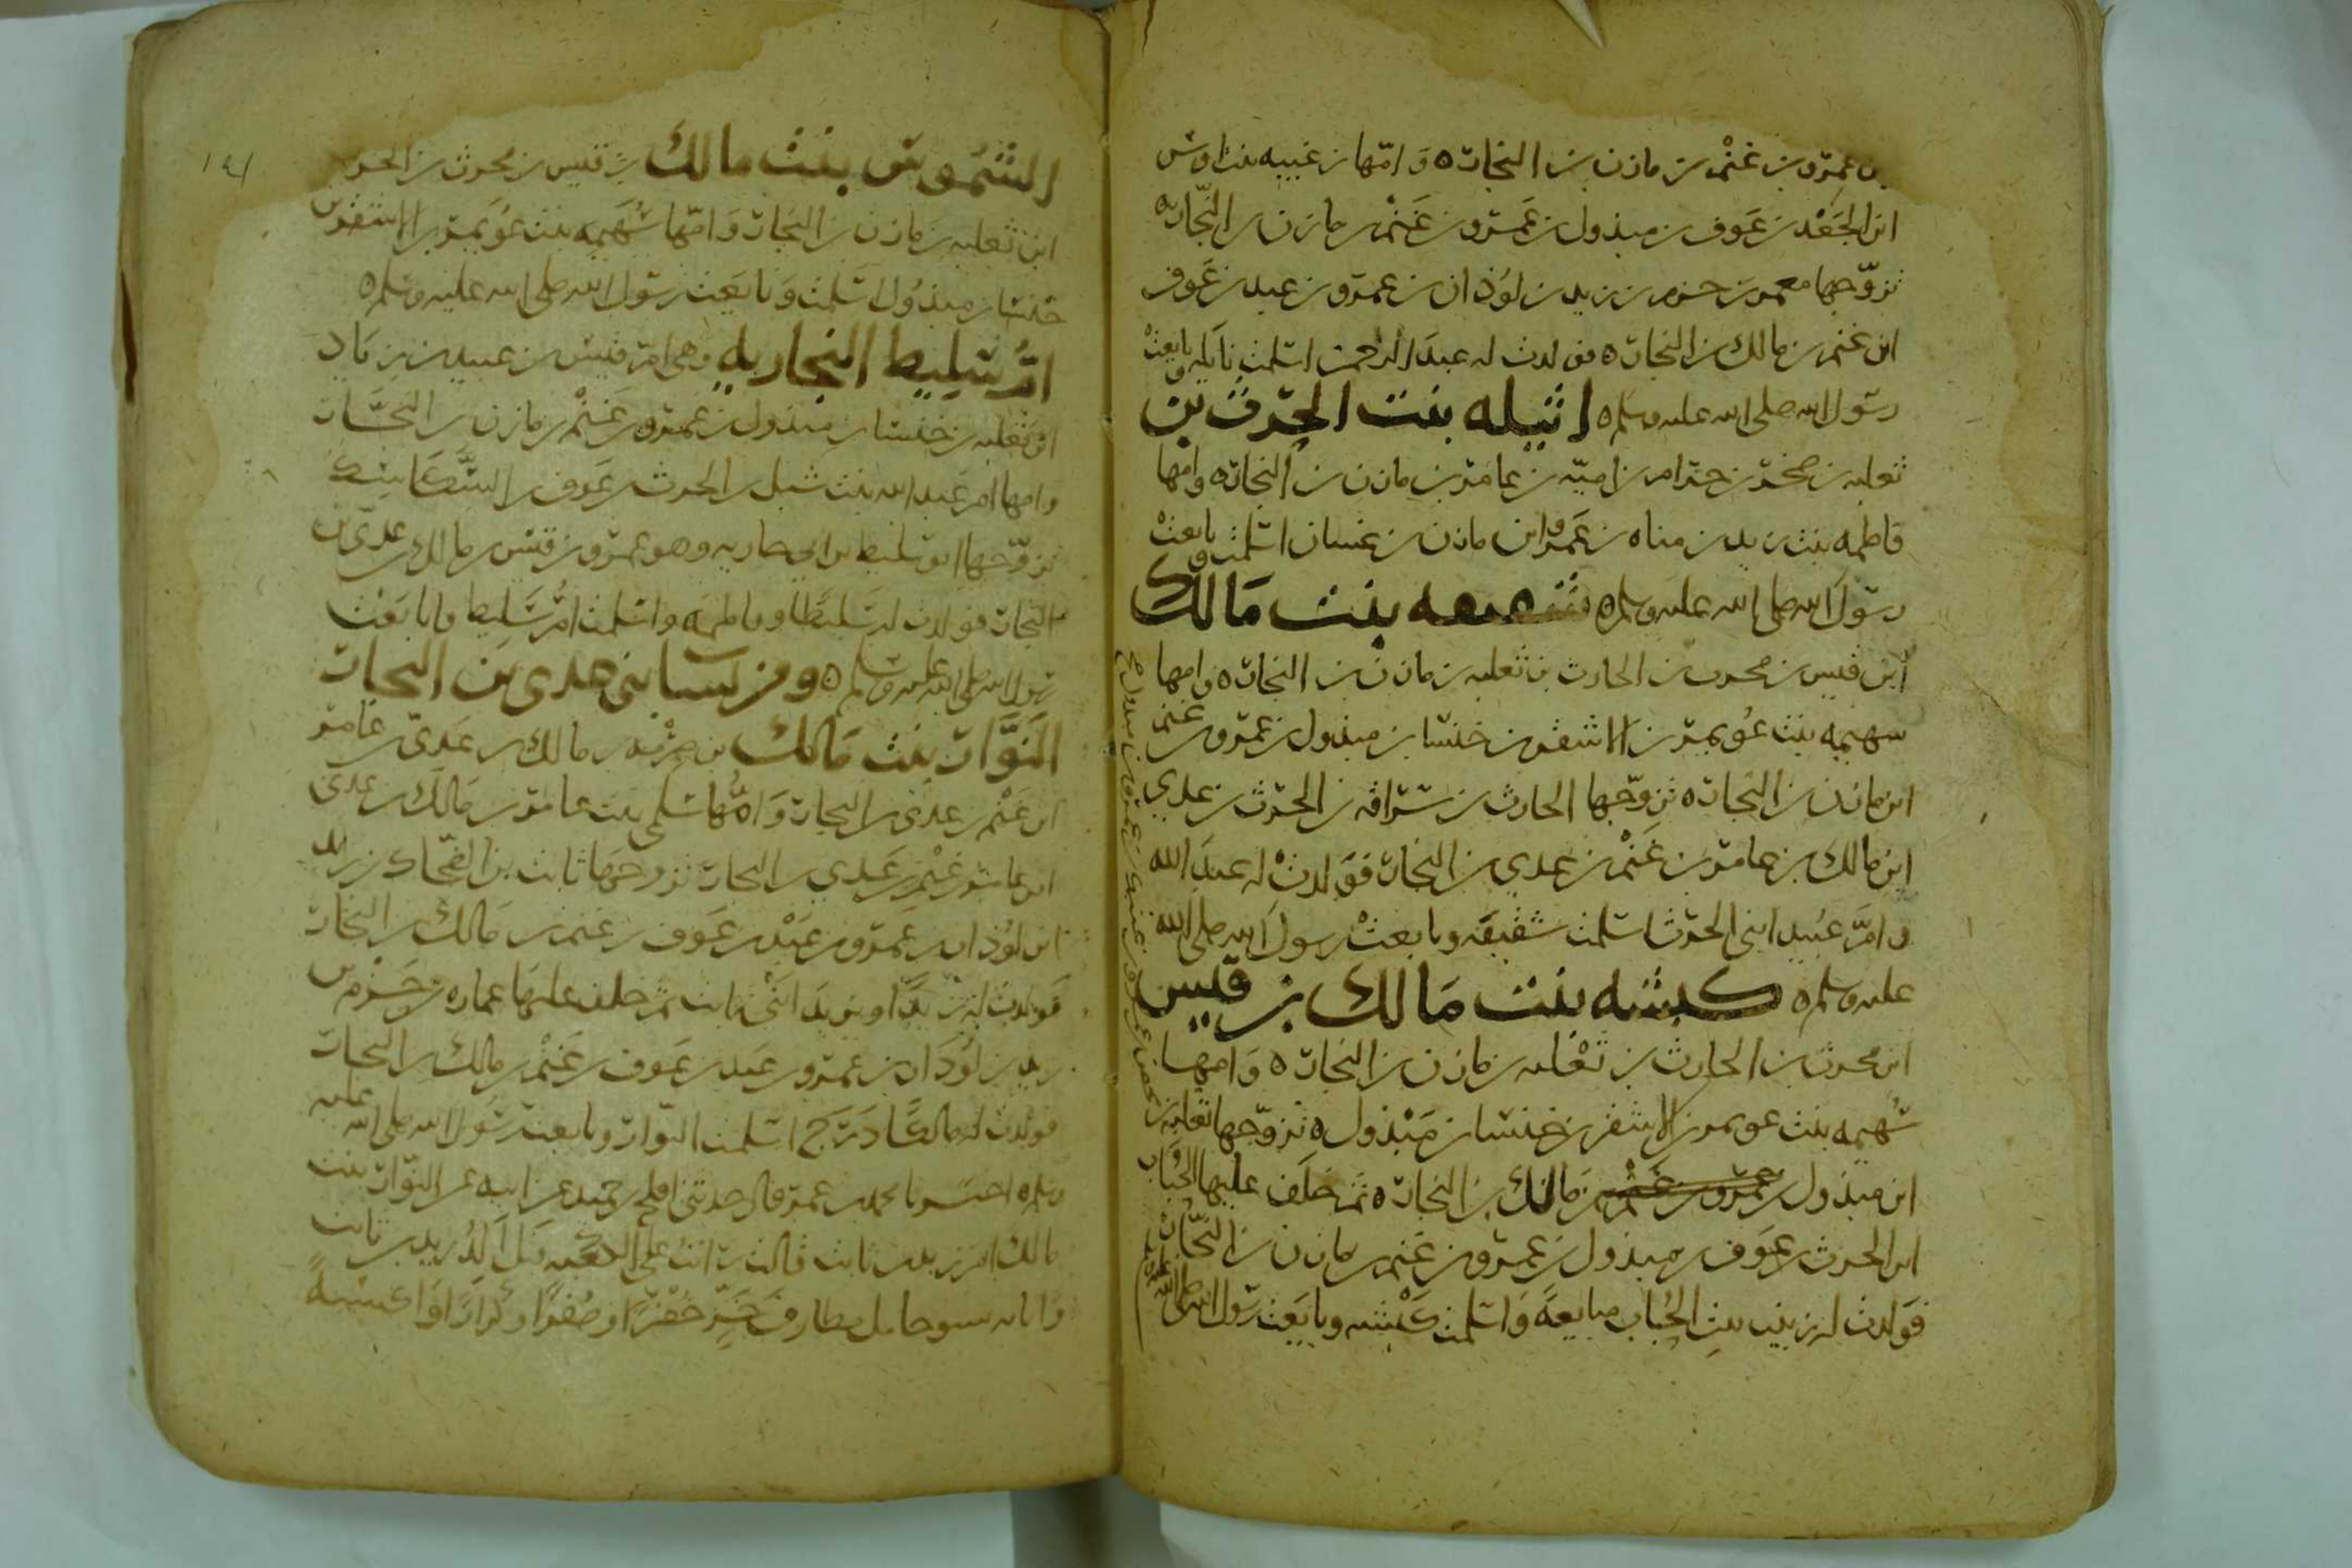 بن عمرو بن غنم بن مازن بن النجار ه وامها زغيبه بنت اوس
ابن الجعد بن عوف بن مبذول بن عمرو بن غنم بن مازن بن النجار ه
تزوجها معمر بن حزم بن زيد بن لوذان بن عمرو بن عبد بن عوف
ابن غنم بن مالك بن النجار ه فولدت له عبد الرحمن اسلمت نايله وبايعت
رسول الله صلى الله عليه وسلم ه اثيله بنت الحرث بن
ثعلبه بن صخر بن حرام بن اميه بن عامر بن مازن بن النجار ه وامها
فاطمه بنت زيد بن مناه بن عمرو ابن مازن بن غسان اسلمت وبايعت
رسول الله صلى الله عليه وسلم ه بنت مالك
ابن قيس بن محرث بن الحارث بن ثعلبه بن مازن بن النجار ه وامها
سهيمه بنت عويمر بن الاشقر بن خنسا بن مبذول بن عمرو بن غنم
ابن مازن بن النجار ه تزوجها الحارث بن سراقه بن الحرث بن عدي
ابن مالك بن عامر بن غنم بن عدي بن النجار فولدت له عبد الله
وام عبيد ابني الحرث اسلمت شقيقه وبايعت رسول الله صلى الله
عليه وسلم ه كبشه بنت مالك بن قيس
ابن محرث بن الحارث بن ثعلبه بن مازن بن النجار ه وامها
سهيمه بنت عويمر بن الاشقر بن خنسا بن مبذول ه تزوجها ثعلبه بن محصن بن عمرو بن عتيك بن عمرو بن مبذول صح
ابن مبذول بن عمرو بن غنم بن مالك بن النجار ه ثم خلف عليها الحباب
ابن الحرث بن عوف بن مبذول بن عمرو بن غنم بن مازن بن النجار
فولدت له زينب بنت الحباب مبايعة واسلمت كبشه وبايعت رسول الله صلى الله عليه وسلم
١٤١
الشموس بنت مالك بن قيس بن محرث بن الحرث
ابن ثعلبه بن مازن بن النجار وامها سهيمه بنت عويمر بن الاشقر بن
خنسا بن مبذول اسلمت وبايعت رسول الله صلى الله عليه وسلم ه
ام سليط النجاريه وهي ام قيس بنت عبيد بن زياد
ابن ثعلبه بن خنسا بن مبذول بن عمرو بن غنم بن مازن بن النجار
وامها ام عبد الله بنت شبل بن الحرث بن عوف بن السكاسك
تزوجها ابو سليط بن ابي حاريه وهو عمرو بن قيس بن مالك بن عدي بن
النجار فولدت له سليطا وفاطمه واسلمت ام سليط وبايعت
رسول الله صلى الله عليه وسلم ه ومن نسا بني عدي بن النجار
النوار بنت مالك بن صرمه بن مالك بن عدي بن عامر
ابن غنم بن عدي بن النجار وامها سلمى بنت عامر بن مالك بن عدي
ابن عامر بن غنم بن عدي بن النجار تزوجها ثابت بن الضحاك بن زيد
ابن لوذان بن عمرو بن عبد بن عوف بن غنم بن مالك بن النجار
فولدت له زيدا ويزيد ابني ثابت ثم خلف عليها عماره بن حزم بن
زيد بن لوذان بن عمرو بن عبد بن عوف بن غنم بن مالك بن النجار
فولدت له مالكا درج اسلمت النوار وبايعت رسول الله صلى الله عليه
وسلم ه اخبرنا محمد بن عمر قال حدثني افلح بن حميد عن ابيه عن النوار بنت
مالك ام زيد بن ثابت قالت رايت على الكعبه قبل ان الد زيد بن ثابت
وانا به نسو حامل مطارف خز خضرا وصفرا وكرارا واكسية